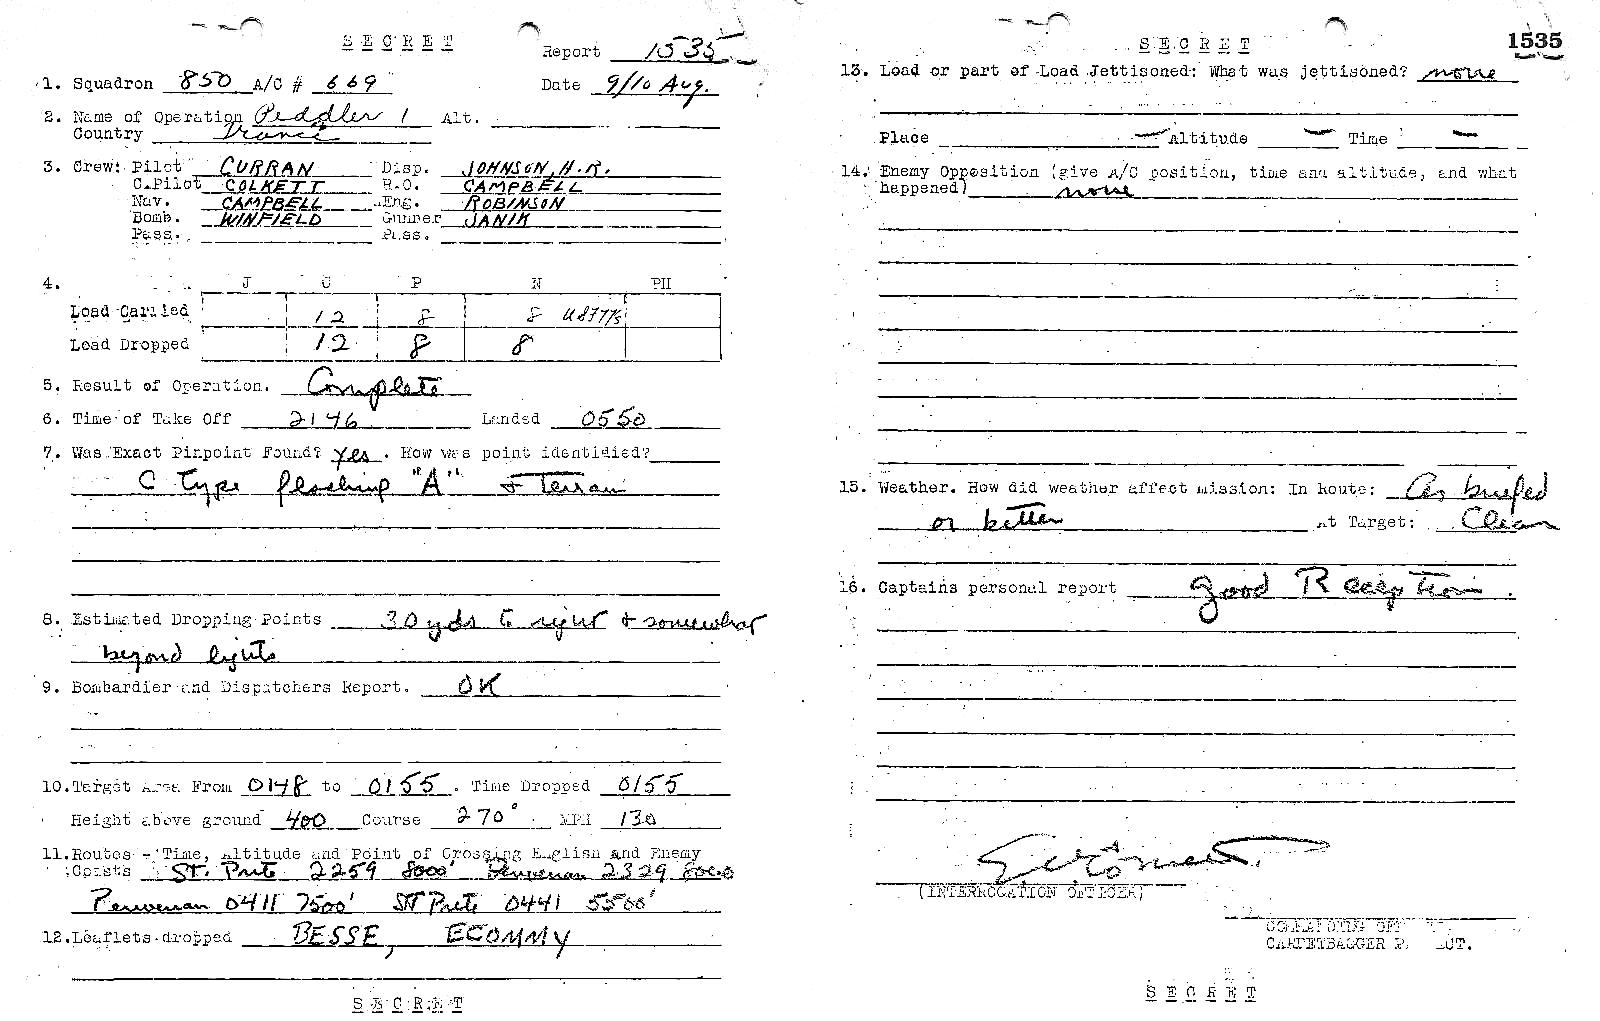 SECRET
Report 1535
1. Squadron 850 A/C # 669 Date 9/10 Aug.
2. Name of Operation Peddler 1 Alt.
Country France
3. Crew: Pilot CURRAN Disp. JOHNSON, H.R.
C.Pilot COLKETT R.O. CAMPBELL
Nav. CAMPBELL Eng. ROBINSON
Bomb. WINFIELD Gunner JANIK
Pass. Pass.
4. J C P N PH
Load Carried 12 8 8 U87775
Load Dropped 12 8 8
5. Result of Operation. Complete
6. Time of Take Off 2146 Landed 0550
7. Was Exact Pinpoint Found? Yes. How was point identidied?
C type flashing "A" & Terrain
8. Estimated Dropping Points 30 yds to right & somewhat
beyond lights
9. Bombardier and Dispatchers Report. OK
10. Target Area From 0148 to 0155. Time Dropped 0155
Height above ground 400 Course 270° MPH 130
11. Routes - Time, Altitude and Point of Crossing English and Enemy
Coasts St. Prete 2259 8000' 2329 8000
0411 7500' St Prete 0441 5500'
12. Leaflets dropped BESSE, ECOMMY
SECRET
SECRET
1535
13. Load or part of Load Jettisoned: What was jettisoned? none
Place — Altitude — Time —
14. Enemy Opposition (give A/C position, time and altitude, and what
happened) none
15. Weather. How did weather affect mission: In Route: As briefed
or better At Target: Clear
16. Captains personal report Good Reception.
(INTERROGATION OFFICER)
COMMANDING OFF
CARPETBAGGER P. ECT.
SECRET